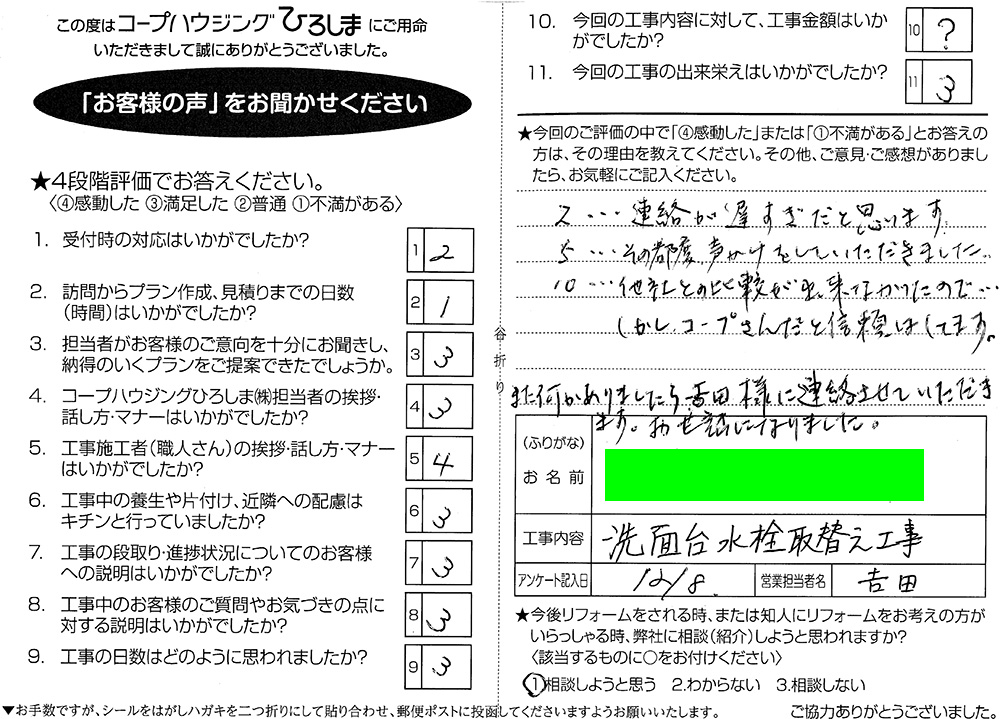 この度はコープハウジングひろしまにご用命
いただきまして誠にありがとうございました。
「お客様の声」をお聞かせください
★4段階評価でお答えください。
〈④感動した ③満足した ②普通 ①不満がある〉
1. 受付時の対応はいかがでしたか？
1 2
2. 訪問からプラン作成、見積りまでの日数
（時間）はいかがでしたか？
2 1
3. 担当者がお客様のご意向を十分にお聞きし、
納得のいくプランをご提案できたでしょうか。
3 3
4. コープハウジングひろしま㈱担当者の挨拶・
話し方・マナーはいかがでしたか？
4 3
5. 工事施工者（職人さん）の挨拶・話し方・マナー
はいかがでしたか？
5 4
6. 工事中の養生や片付け、近隣への配慮は
キチンと行っていましたか？
6 3
7. 工事の段取り・進捗状況についてのお客様
への説明はいかがでしたか？
7 3
8. 工事中のお客様のご質問やお気づきの点に
対する説明はいかがでしたか？
8 3
9. 工事の日数はどのように思われましたか？
9 3
▼お手数ですが、シールをはがしハガキを二つ折りにして貼り合わせ、郵便ポストに投函してくださいますようお願いいたします。
谷折り
10. 今回の工事内容に対して、工事金額はいか
がでしたか？
10 ?
11. 今回の工事の出来栄えはいかがでしたか？
11 3
★今回のご評価の中で「④感動した」または「①不満がある」とお答えの
方は、その理由を教えてください。その他、ご意見・ご感想がありまし
たら、お気軽にご記入ください。
2…連絡が遅すぎだと思います。
5…その都度、声かけをしていただきました。
10…他社との比較が出来てなかったので…
しかし、コープさんだと信頼はしてます。
また何かありましたら吉田様に連絡させていただき
ます。お世話になりました。
（ふりがな）
お名前
工事内容 洗面台水栓取替え工事
アンケート記入日 12/8. 営業担当者名 吉田
★今後リフォームをされる時、または知人にリフォームをお考えの方が
いらっしゃる時、弊社に相談（紹介）しようと思われますか？
〈該当するものに○をお付けください〉
1.相談しようと思う 2.わからない 3.相談しない
ご協力ありがとうございました。